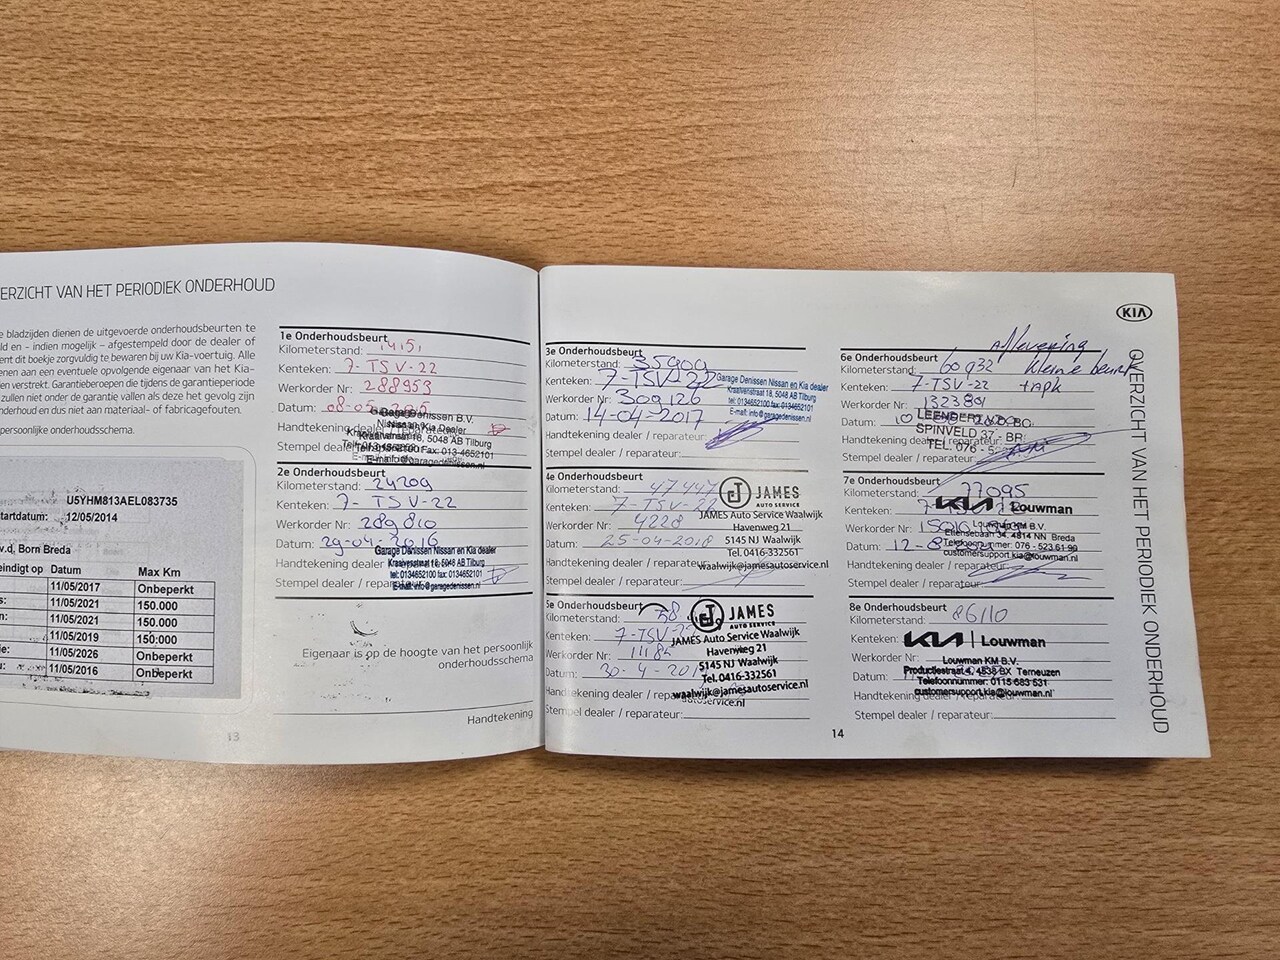 ERZICHT VAN HET PERIODIEK ONDERHOUD
e bladzijden dienen de uitgevoerde onderhoudsbeurten te
ld en - indien mogelijk - afgestempeld door de dealer of
ent dit boekje zorgvuldig te bewaren bij uw Kia-voertuig. Alle
enen aan een eventuele opvolgende eigenaar van het Kia-
en verstrekt. Garantieberoepen die tijdens de garantieperiode
zullen niet onder de garantie vallen als deze het gevolg zijn
nderhoud en dus niet aan materiaal- of fabricagefouten.
persoonlijke onderhoudsschema.
U5YHM813AEL083735
tartdatum: 12/05/2014
v.d. Born Breda
eindigt op Datum Max Km
11/05/2017 Onbeperkt
s: 11/05/2021 150.000
n: 11/05/2021 150.000
11/05/2019 150:000
ie: 11/05/2026 Onbeperkt
u: 11/05/2016 Onbeperkt
13
1e Onderhoudsbeurt
Kilometerstand: 14151
Kenteken: 7-TSV-22
Werkorder Nr: 288953
Datum: 08-05-2015
Handtekening dealer / reparateur:
Stempel dealer
Garage Denissen B.V.
Nissan Kia Dealer
Kraaivenstraat 18, 5048 AB Tilburg
Fax: 013-4652101
2e Onderhoudsbeurt
Kilometerstand: 24209
Kenteken: 7-TSV-22
Werkorder Nr: 289810
Datum: 29-04-2016
Handtekening dealer
Stempel dealer / reparateur
Garage Denissen Nissan en Kia dealer
Kraaivenstraat 18, 5048 AB Tilburg
tel: 0134652100 fax: 0134652101
E-mail: info@garagedenissen.nl
Eigenaar is op de hoogte van het persoonlijk
onderhoudsschema
Handtekening
KIA
OVERZICHT VAN HET PERIODIEK ONDERHOUD
3e Onderhoudsbeurt
Kilometerstand: 35900
Kenteken: 7-TSV-22
Werkorder Nr: 300126
Datum: 14-04-2017
Handtekening dealer / reparateur:
Stempel dealer / reparateur:
Garage Denissen Nissan en Kia dealer
Kraaivenstraat 18, 5048 AB Tilburg
tel: 0134652100 fax: 0134652101
E-mail: info@garagedenissen.nl
4e Onderhoudsbeurt
Kilometerstand: 47447
Kenteken: 7-TSV-22
Werkorder Nr: 4228
Datum: 25-04-2018
Handtekening dealer / reparateur
Stempel dealer / reparateur:
JAMES
AUTO SERVICE
JAMES Auto Service Waalwijk
Havenweg 21
5145 NJ Waalwijk
Tel. 0416-332561
waalwijk@jamesautoservice.nl
5e Onderhoudsbeurt
Kilometerstand: 58
Kenteken: 7-TSV-22
Werkorder Nr:
Datum: 30-4-201
Handtekening dealer / repa
Stempel dealer / reparateur:
JAMES
AUTO SERVICE
JAMES Auto Service Waalwijk
Havenweg 21
5145 NJ Waalwijk
Tel. 0416-332561
waalwijk@jamesautoservice.nl
autoservice.nl
Aflevering
6e Onderhoudsbeurt
Kilometerstand: 60932 kleine beurt
Kenteken: 7-TSV-22 + apk
Werkorder Nr: 132389
Datum: 10
Handtekening dealer / reparateur:
Stempel dealer / reparateur:
LEENDERT
SPINVELD 37, BR
TEL. 076 - 5
7e Onderhoudsbeurt
Kilometerstand: 77095
Kenteken: 7
Werkorder Nr:
Datum: 12-8
Handtekening dealer
Stempel dealer / reparateur
KIA | Louwman
Louwman KM B.V.
Ettensebaan 34, 4814 NN Breda
Telefoonnummer: 076 - 523 61 99
customersupport.kia@louwman.nl
8e Onderhoudsbeurt
Kilometerstand: 86110
Kenteken:
Werkorder Nr:
Datum:
Handtekening dealer
Stempel dealer / reparateur:
KIA | Louwman
Louwman KM B.V.
Productiestraat 4, 4538 BX Terneuzen
Telefoonnummer: 0115 683 531
customersupport.kia@louwman.nl
14